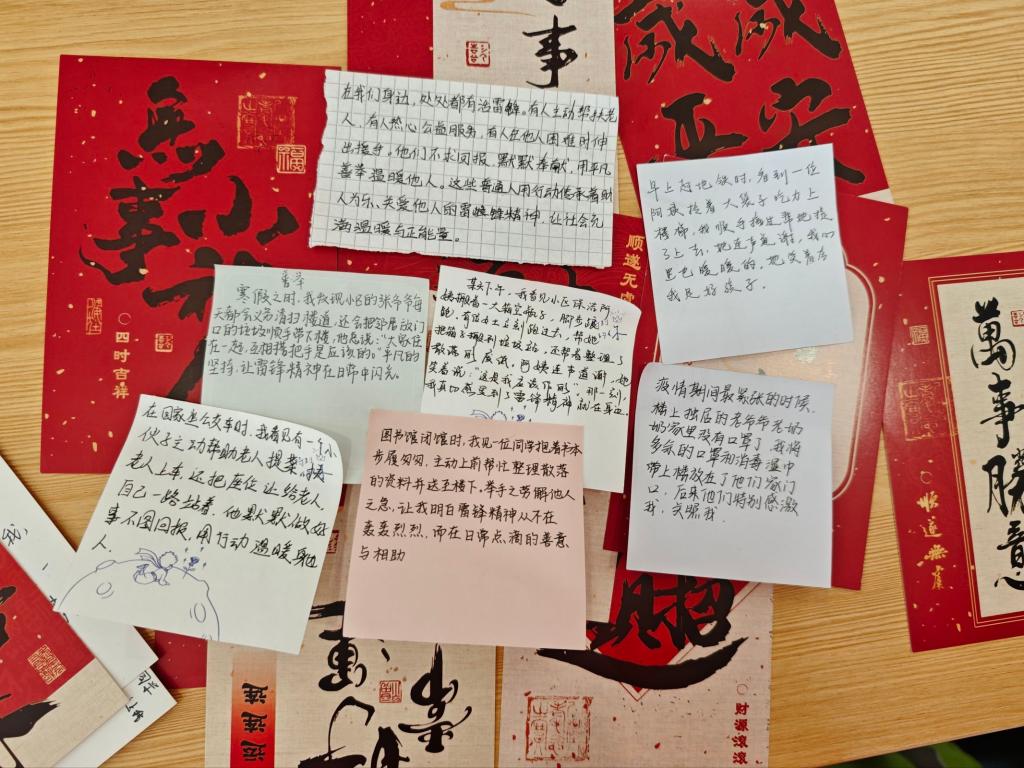 事
歲歲
平安
無事
小神
○四时吉祥
在我们身边,处处都有活雷锋。有人主动帮扶老
人,有人热心公益服务,有人在他人困难时伸
出援手。他们不求回报、默默奉献,用平凡
善举温暖他人。这些普通人用行动传承着助
人为乐、关爱他人的雷锋精神,让社会充
满温暖与正能量。
早上赶地铁时,看到一位
阿姨拎着大袋子吃力上
楼梯,我顺手搭过帮她提
了上去,她连声道谢,我心
里也暖暖的。她笑着说
我是好孩子。
顺遂无虞
寒假之时,我发现小区的张爷爷每
天都会义务清扫楼道,还会把邻居放门
口的垃圾顺手带下楼,他总说:“大家住
在一起,互相搭把手是应该的。”平凡的
坚持,让雷锋精神在日常中闪光。
某天下午,我看见小区保洁阿
姨搬着一大箱空瓶子,脚步蹒
跚。有位女士立刻跑过去,帮她
把箱子搬到垃圾站,还帮着整理了
散落的废纸。阿姨连声道谢,她
笑着说:“这是我应该作的”那一刻,
我真切感受到了雷锋精神就在身边。
疫情期间最紧张的时候,
楼上独居的老爷爷老奶
奶家里没有口罩了,我将
多余的口罩和消毒湿巾
带上楼放在了他们家门
口,后来他们特别感激
我,夸赞我。
在回家坐公交车时,我看见有一个小
伙子主动帮助老人提菜,
老人上车,还把座位让给老人,
自己一路站着。他默默做好
事不图回报,用行动温暖身边
人。
图书馆闭馆时,我见一位同学抱着书本
步履匆匆,主动上前帮忙整理散落
的资料并送至楼下,举手之劳解他人
之急,让我明白雷锋精神从不在
轰轰烈烈,而在日常点滴的善意
与相助
萬事勝意
○顺遂無虞
招
运连连
○财源滚滚